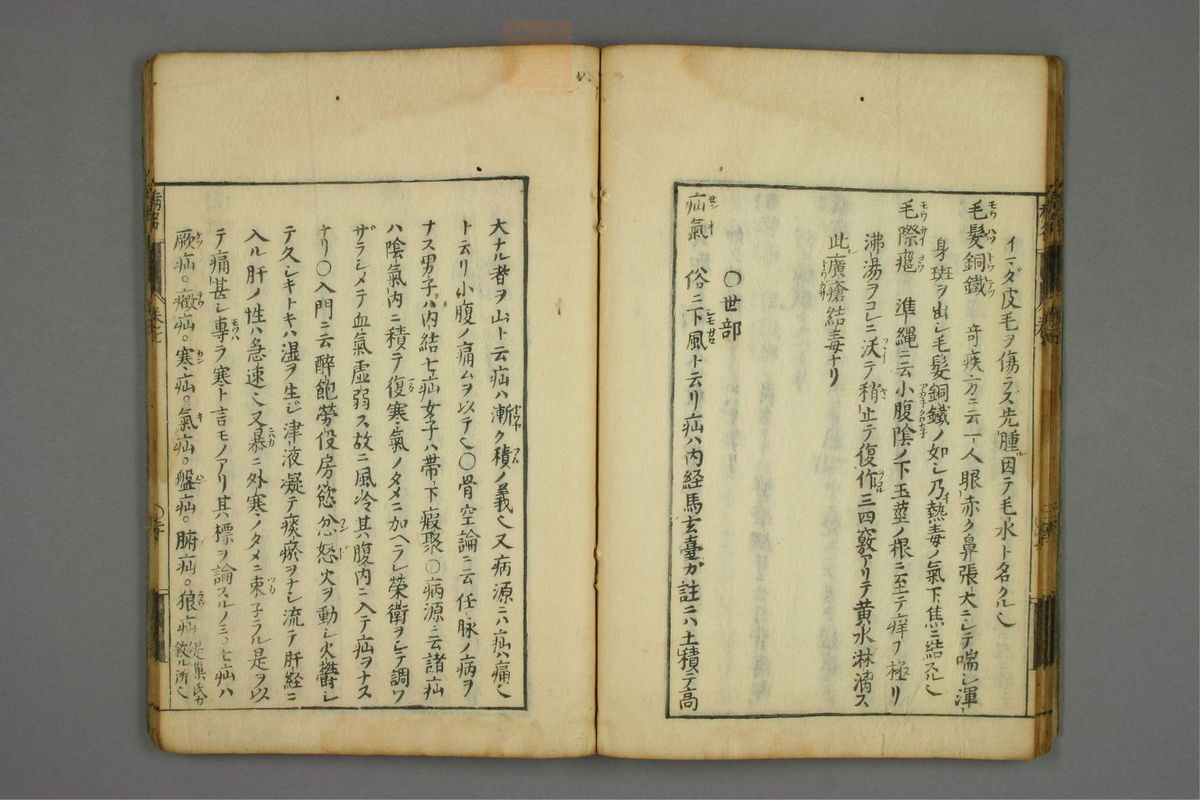 イマダ皮毛ヲ傷ラズ先腫因テ毛水ト名クル也
毛髪銅鐵 竒疾方ニ云一人眼赤ク鼻張大ニシテ喘シ渾
身斑ヲ出シ毛髪銅鐵ノ如シ乃熱毒ノ氣下焦ニ結スル也
毛際瘡 準縄ニ云小腹陰ノ下玉莖ノ根ニ至テ痒フ極リ
沸湯ヲコレニ沃テ稍止テ復作三四竅アリテ黄水淋漓ス
此廣瘡結毒ナリ
〇世部
疝氣 俗ニ下風ト云リ疝ハ内経馬玄臺ガ註ニハ土積テ高
大ナル者ヲ山ト云疝ハ漸ク積ノ義也又病源ニハ疝ハ痛也
ト云リ小腹ノ痛ムヲ以テ也〇骨空論ニ云任脉ノ病ヲ
ナス男子ハ内結七疝女子ハ帯下瘕聚〇病源ニ云諸疝
ハ陰氣内ニ積テ復寒氣ノタメニ加ヘラレ榮衛ヲシテ調ワ
ザラシメテ血氣虚弱ス故ニ風冷其腹内ニ入テ疝ヲナス
ナリ〇入門ニ云醉飽勞役房慾忿怒火ヲ動シ火鬱シ
テ久シキトキハ湿ヲ生ジ津液凝テ痰瘀ヲナシ流テ肝経ニ
入ル肝ノ性ハ急速也又暴ニ外寒ノタメニ束子ラル是ヲ以
テ痛甚シ専ラ寒ト言モノアリ其標ヲ論スルノミ〇七疝ハ
厥疝。癥疝。寒疝。氣疝。盤疝。腑疝。狼疝 是巣氏カ敘ル所也